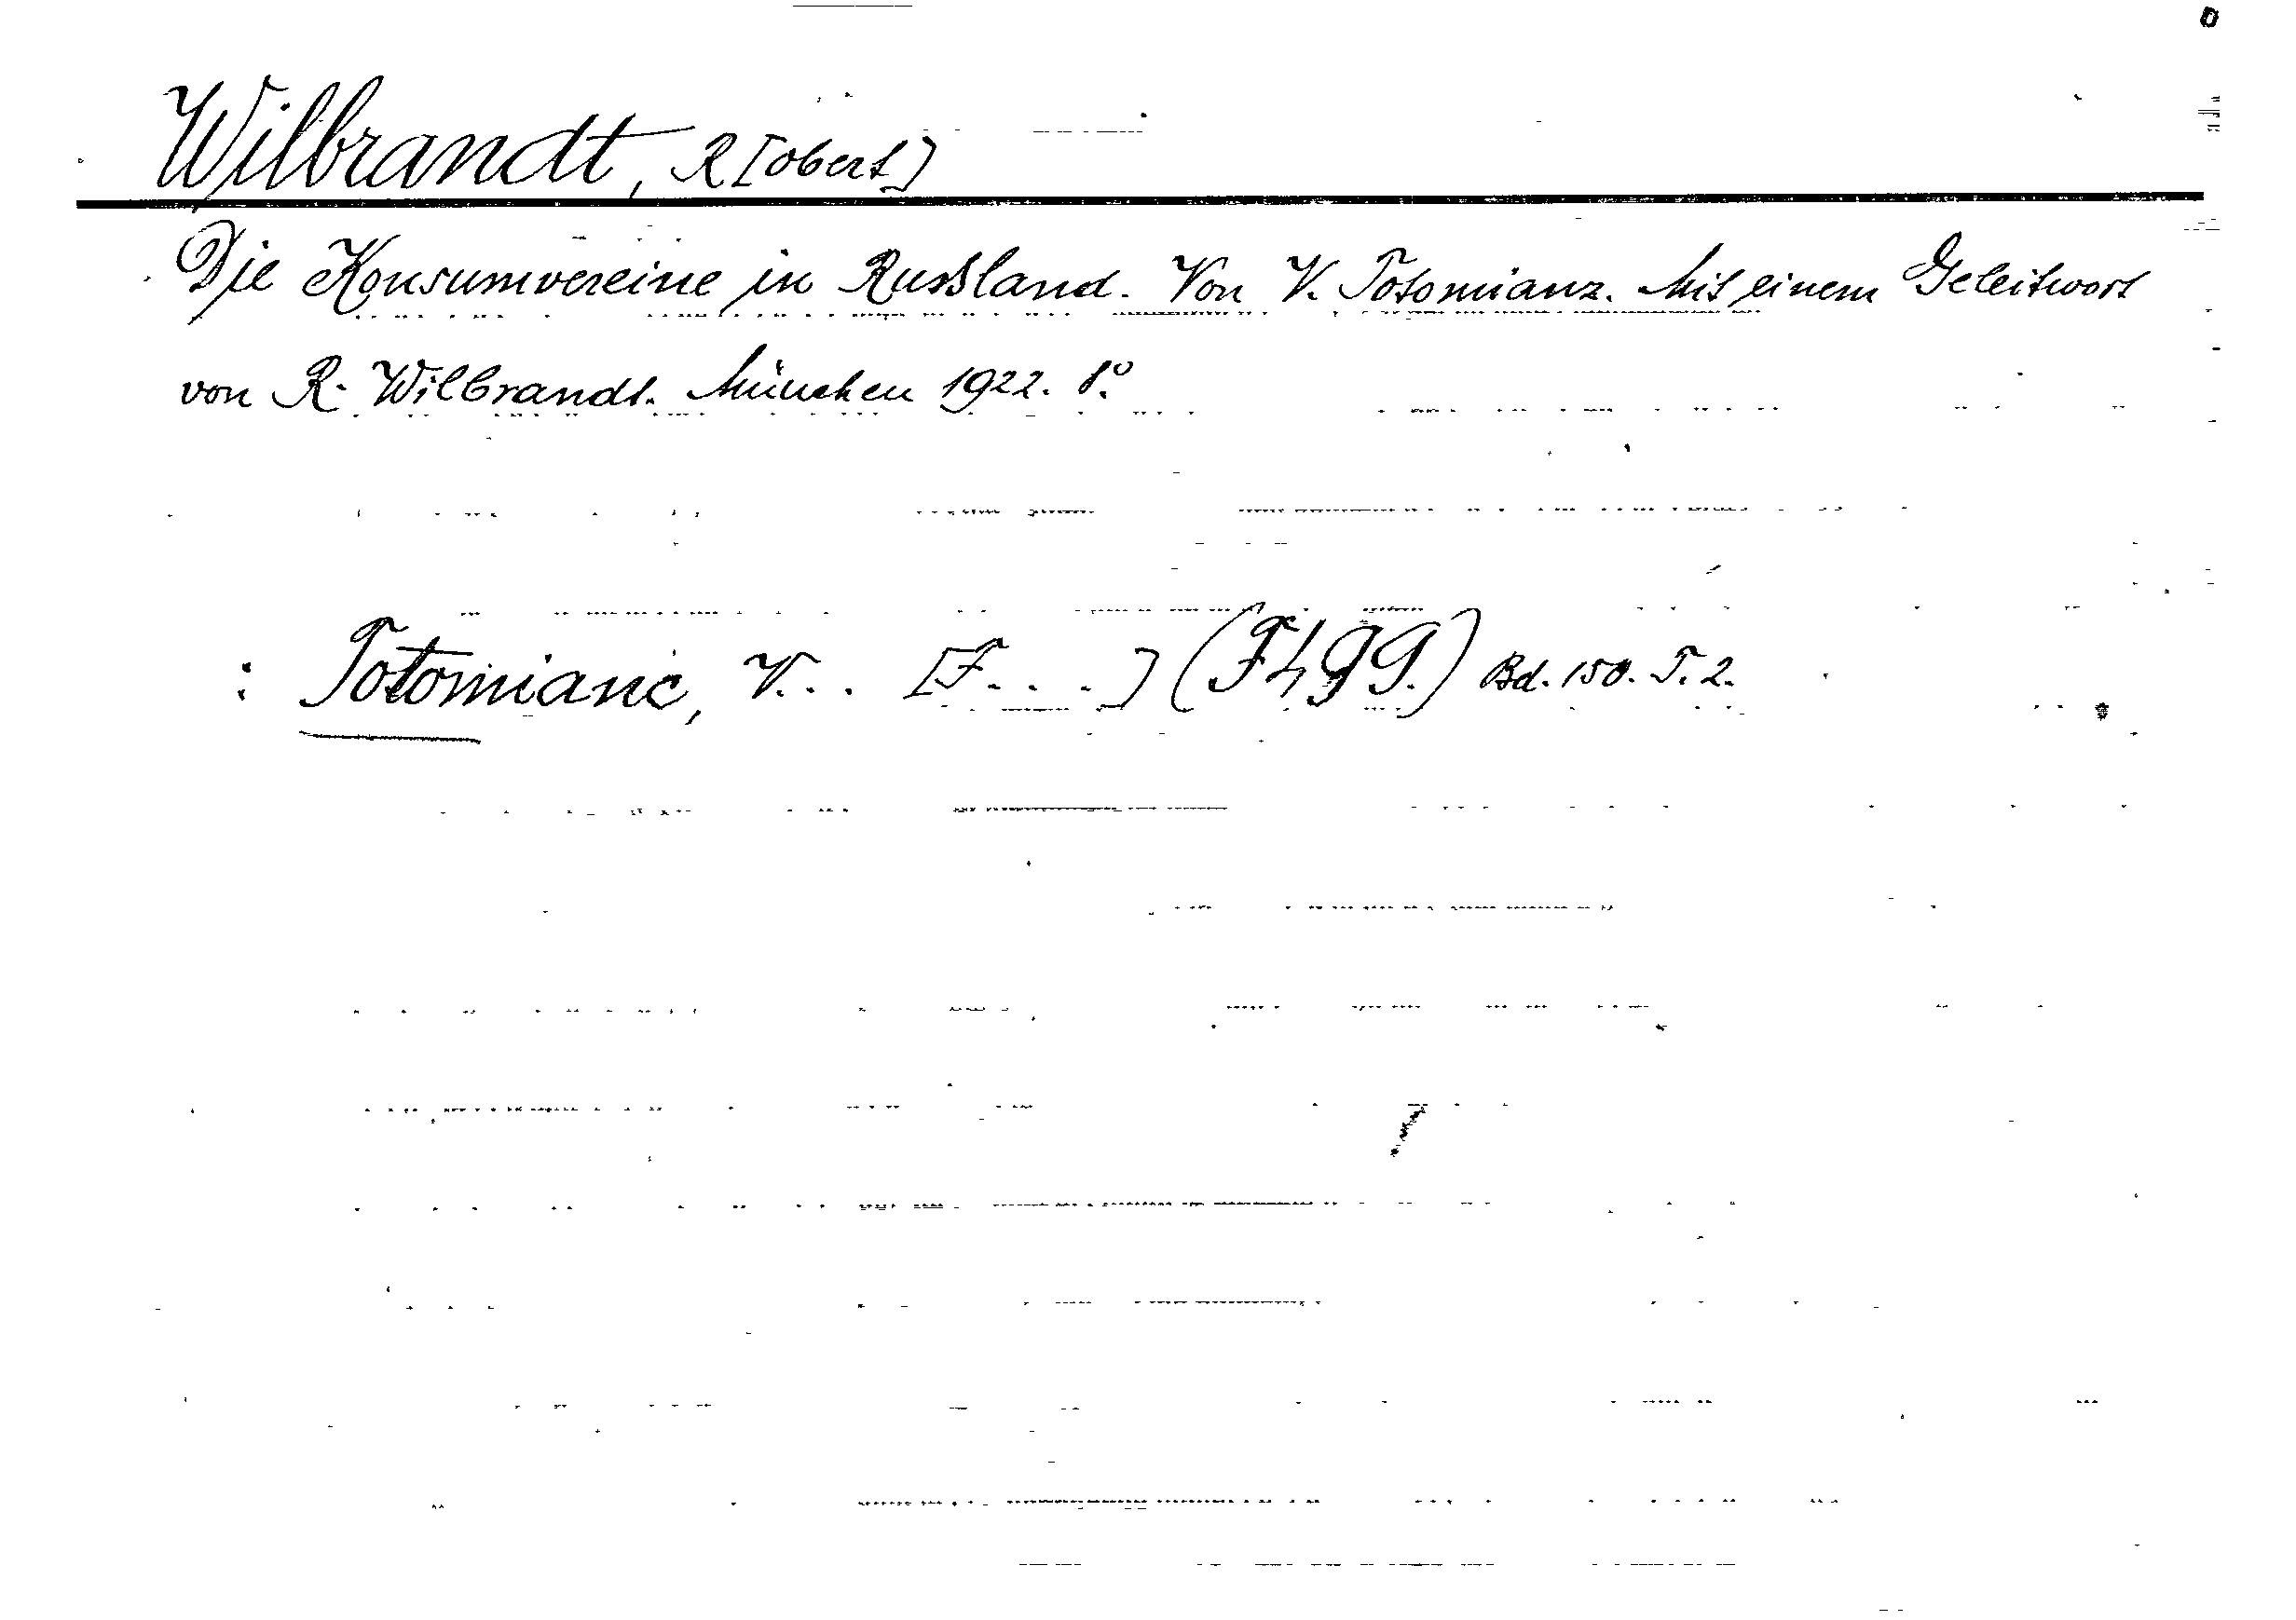 Wilbrandt, R[obert]
Die Konsumvereine in Russland. Von V. Totomianz. Mit einem Geleitwort
von R. Wilbrandt. München 1922. 8°.
: Totomianc, V... [F....] Bd. 150. T. 2.